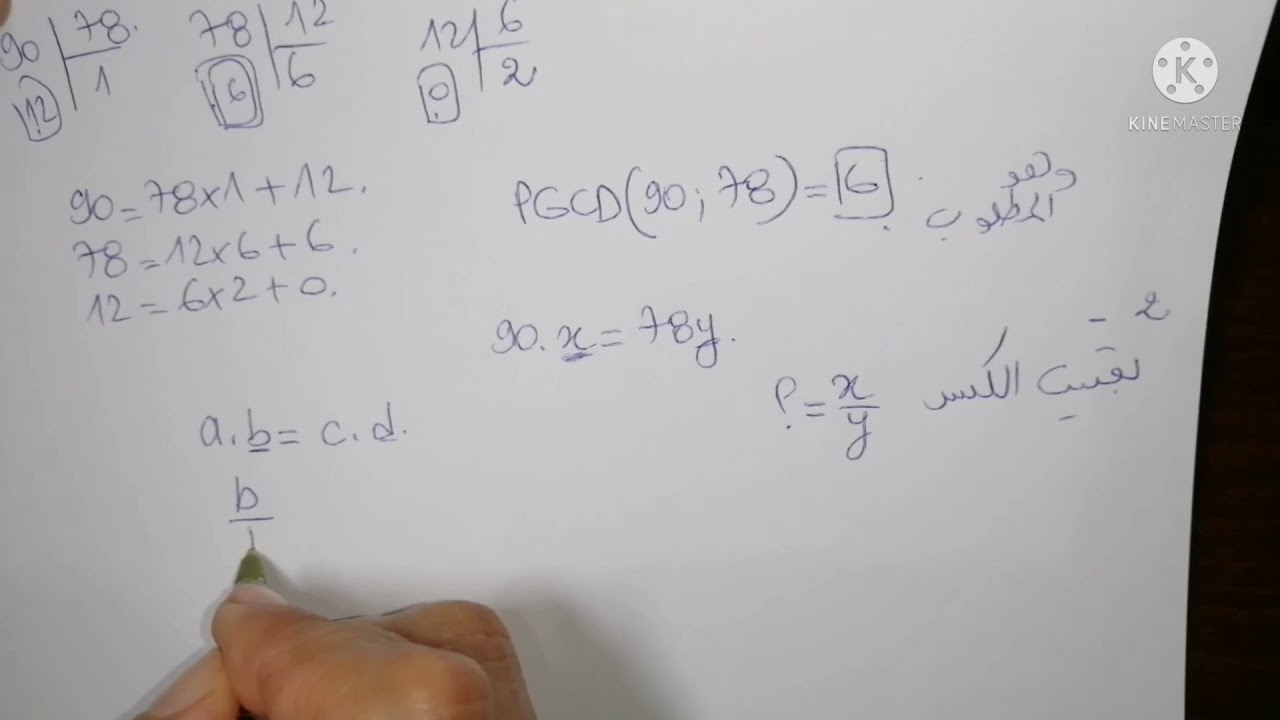 90 | 78
12 | 1
78 | 12
6 | 6
12 | 6
0 | 2
90 = 78 x 1 + 12.
78 = 12 x 6 + 6.
12 = 6 x 2 + 0.
PGCD(90; 78) = 6.
وهو
المطلوب
2 -
الكسر x/y = ?
90.x = 78y.
a.b = c.d.
b
KINEMASTER